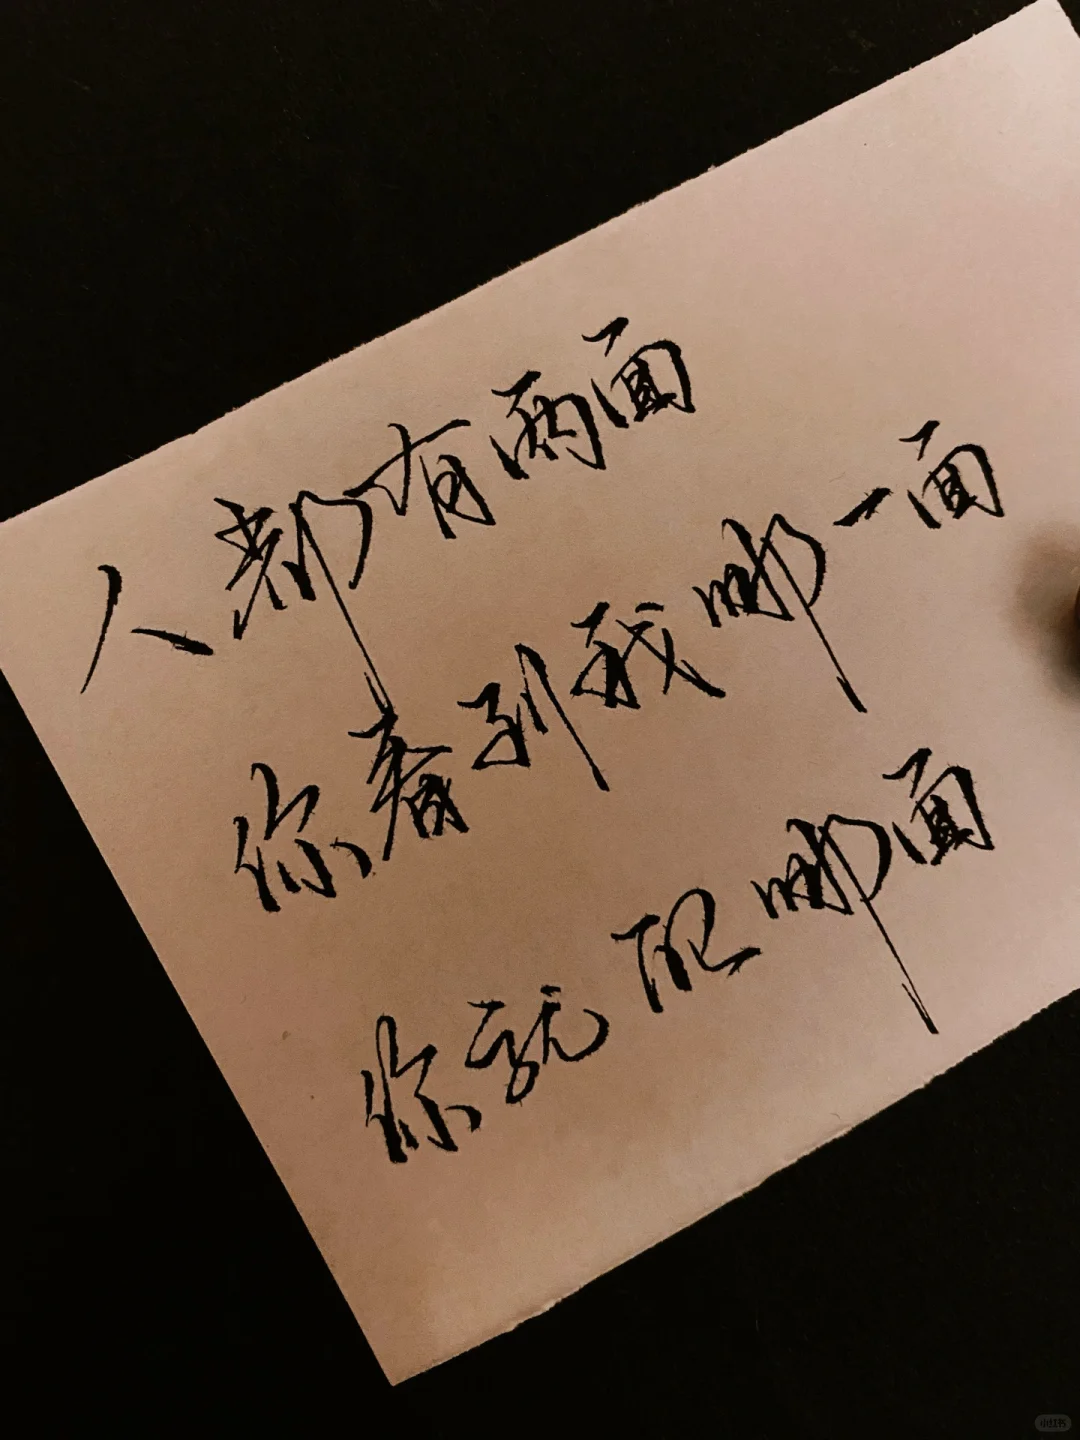 人都有两面
你看到我哪一面
你就配哪面
小红书